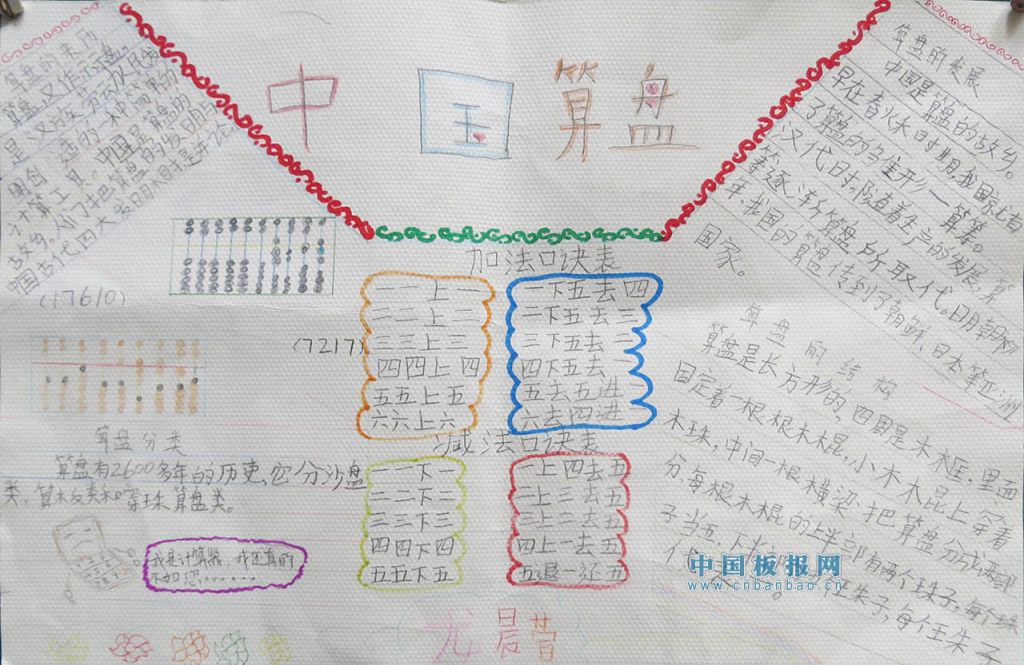 中国算盘
算盘的来历
算盘,又作祘盘。
中国是算盘的
故乡,人们把算盘的发明与
中国古代四大发明相提并论
(17610)
(7217)
算盘分类
算盘有2600多年的历史,它分沙盘
类、算板类和穿珠算盘类。
我是计算器,我还真的
不如您......
加法口诀表
一一上一
二二上二
三三上三
四四上四
五五上五
六六上六
一下五去四
二下五去三
三下五去二
四下五去一
五去五进一
六去四进一
减法口诀表
一一下一
二二下二
三三下三
四四下四
五五下五
一上四去五
二上三去五
三上二去五
四上一去五
五退一还五
龙晨营
算盘的发展
中国是算盘的故乡。
早在春秋时期,我国就有
了算盘的多生形——算筹。
汉代时,随着生当的发展,算
筹逐渐算盘所取代。明朝
年,我国的算盘传到了朝鲜、日本等亚洲
国家。
算盘的结构
算盘是长方形的,四周是木框,里面
固定着一根根木棍,小木棍上穿着
木珠,中间一根横梁把算盘分成两部
分,每根木棍的上半部有两个珠子,每个珠
子当五,下半
珠子,每个珠子
代
中国板报网
www.cnbanbao.cn